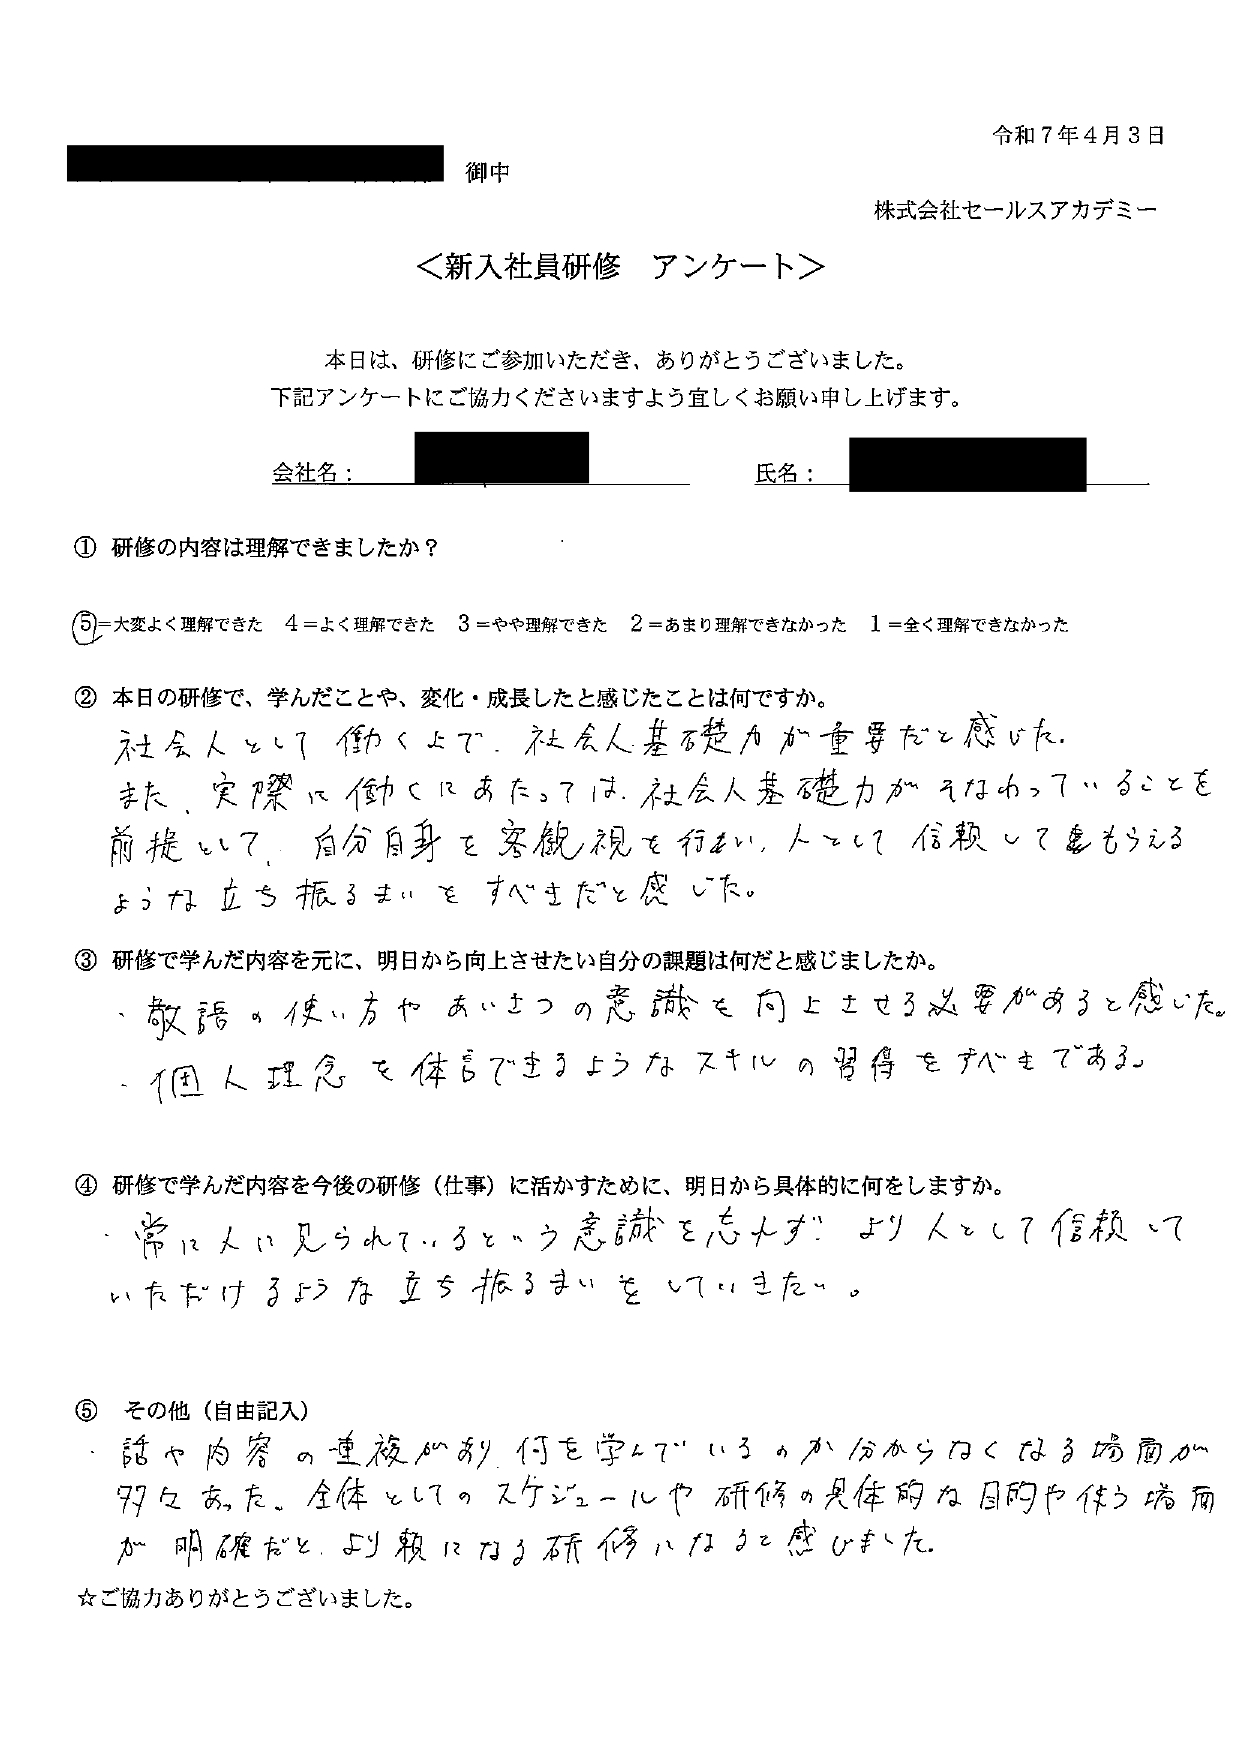 令和７年４月３日
御中
株式会社セールスアカデミー
＜新入社員研修　アンケート＞
本日は、研修にご参加いただき、ありがとうございました。
下記アンケートにご協力くださいますよう宜しくお願い申し上げます。
会社名：　氏名：
① 研修の内容は理解できましたか？
5＝大変よく理解できた　4＝よく理解できた　3＝やや理解できた　2＝あまり理解できなかった　1＝全く理解できなかった
② 本日の研修で、学んだことや、変化・成長したと感じたことは何ですか。
社会人として働く上で、社会人基礎力が重要だと感じた。
また、実際に働くにあたっては、社会人基礎力がそなわっていることを
前提として、自分自身を客観視を行い、人として信頼してもらえる
ような立ち振るまいをすべきだと感じた。
③ 研修で学んだ内容を元に、明日から向上させたい自分の課題は何だと感じましたか。
・敬語の使い方やあいさつの意識を向上させる必要があると感じた。
・個人理念を体言できるようなスキルの習得をすべきである。
④ 研修で学んだ内容を今後の研修（仕事）に活かすために、明日から具体的に何をしますか。
・常に人に見られているという意識を忘れず、より人として信頼して
いただけるような立ち振るまいをしていきたい。
⑤　その他（自由記入）
・話や内容の重複があり、何を学んでいるのか分からなくなる場面が
多々あった。全体としてのスケジュールや研修の具体的な目的や使う場面
が明確だと、より頼になる研修になると感じました。
☆ご協力ありがとうございました。